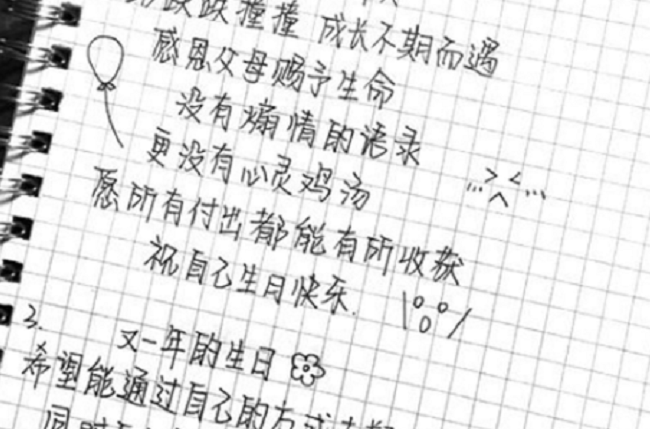 跌跌撞撞 成长不期而遇
感恩父母赐予生命
没有煽情的语录
更没有心灵鸡汤
愿所有付出都能有所收获
祝自己生日快乐.
3.
又一年的生日
希望能通过自己的方式
同时